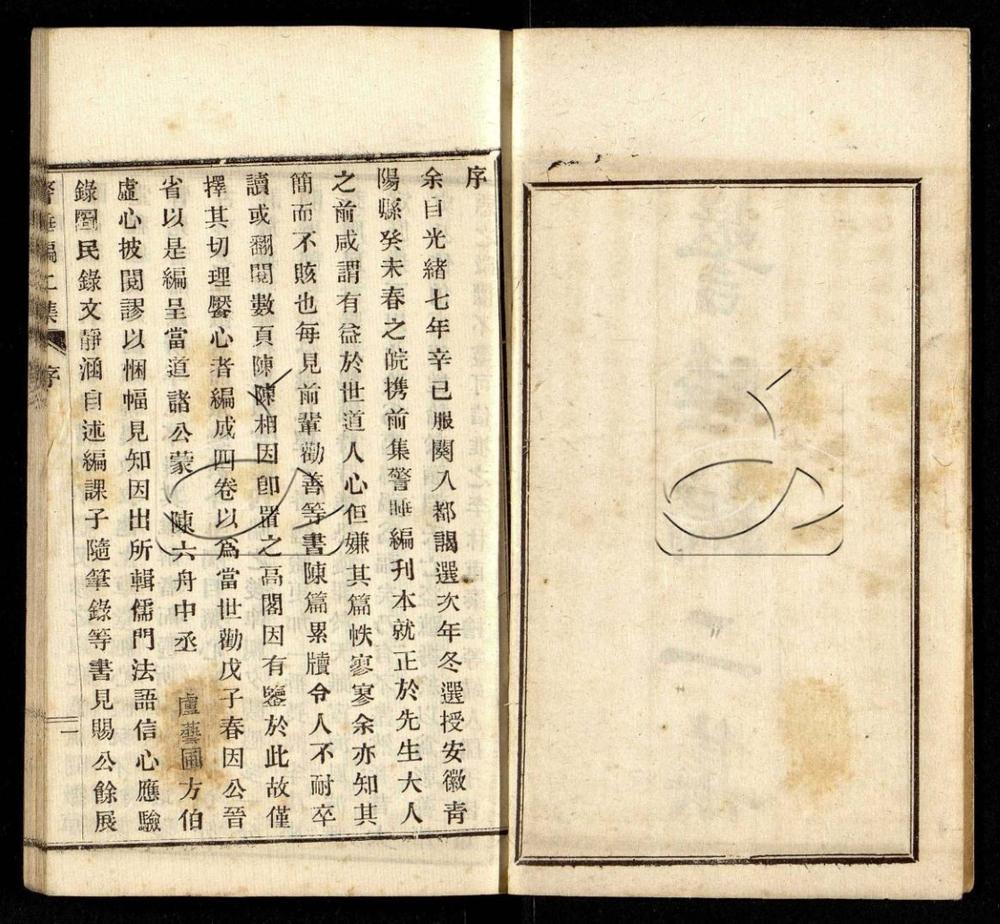 序
余自光緒七年辛巳服闋入都謁選次年冬選授安徽青
陽縣癸未春之皖携前集警睡編刊本就正於先生大人
之前咸謂有益於世道人心但嫌其篇帙寥寥余亦知其
簡而不賅也每見前輩勸善等書陳篇累牘令人不耐卒
讀或翻閱數頁陳陳相因卽置之高閣因有鑒於此故僅
擇其切理饜心者編成四卷以爲當世勸戊子春因公晉
省以是編呈當道諸公蒙 陳六舟中丞 盧藝圃方伯
虛心披閱謬以悃愊見知因出所輯儒門法語信心應驗
錄國民錄文靜涵自述編課子隨筆錄等書見賜公餘展
警睡編二集 序 一